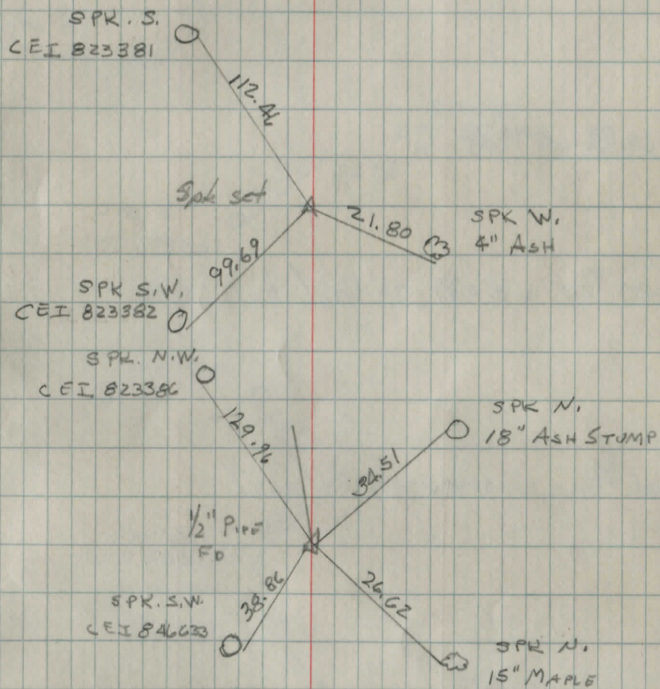 SPK. S.
CEI 823381
112.46
Spk set
21.80
SPK W.
4" ASH
99.69
SPK S.W.
CEI 823382
SPK. N.W.
CEI 823386
129.96
SPK N.
18" ASH STUMP
34.51
1/2" PIPE
FD
38.86
26.62
SPK. S.W.
CEI 846633
SPK N.
15" MAPLE